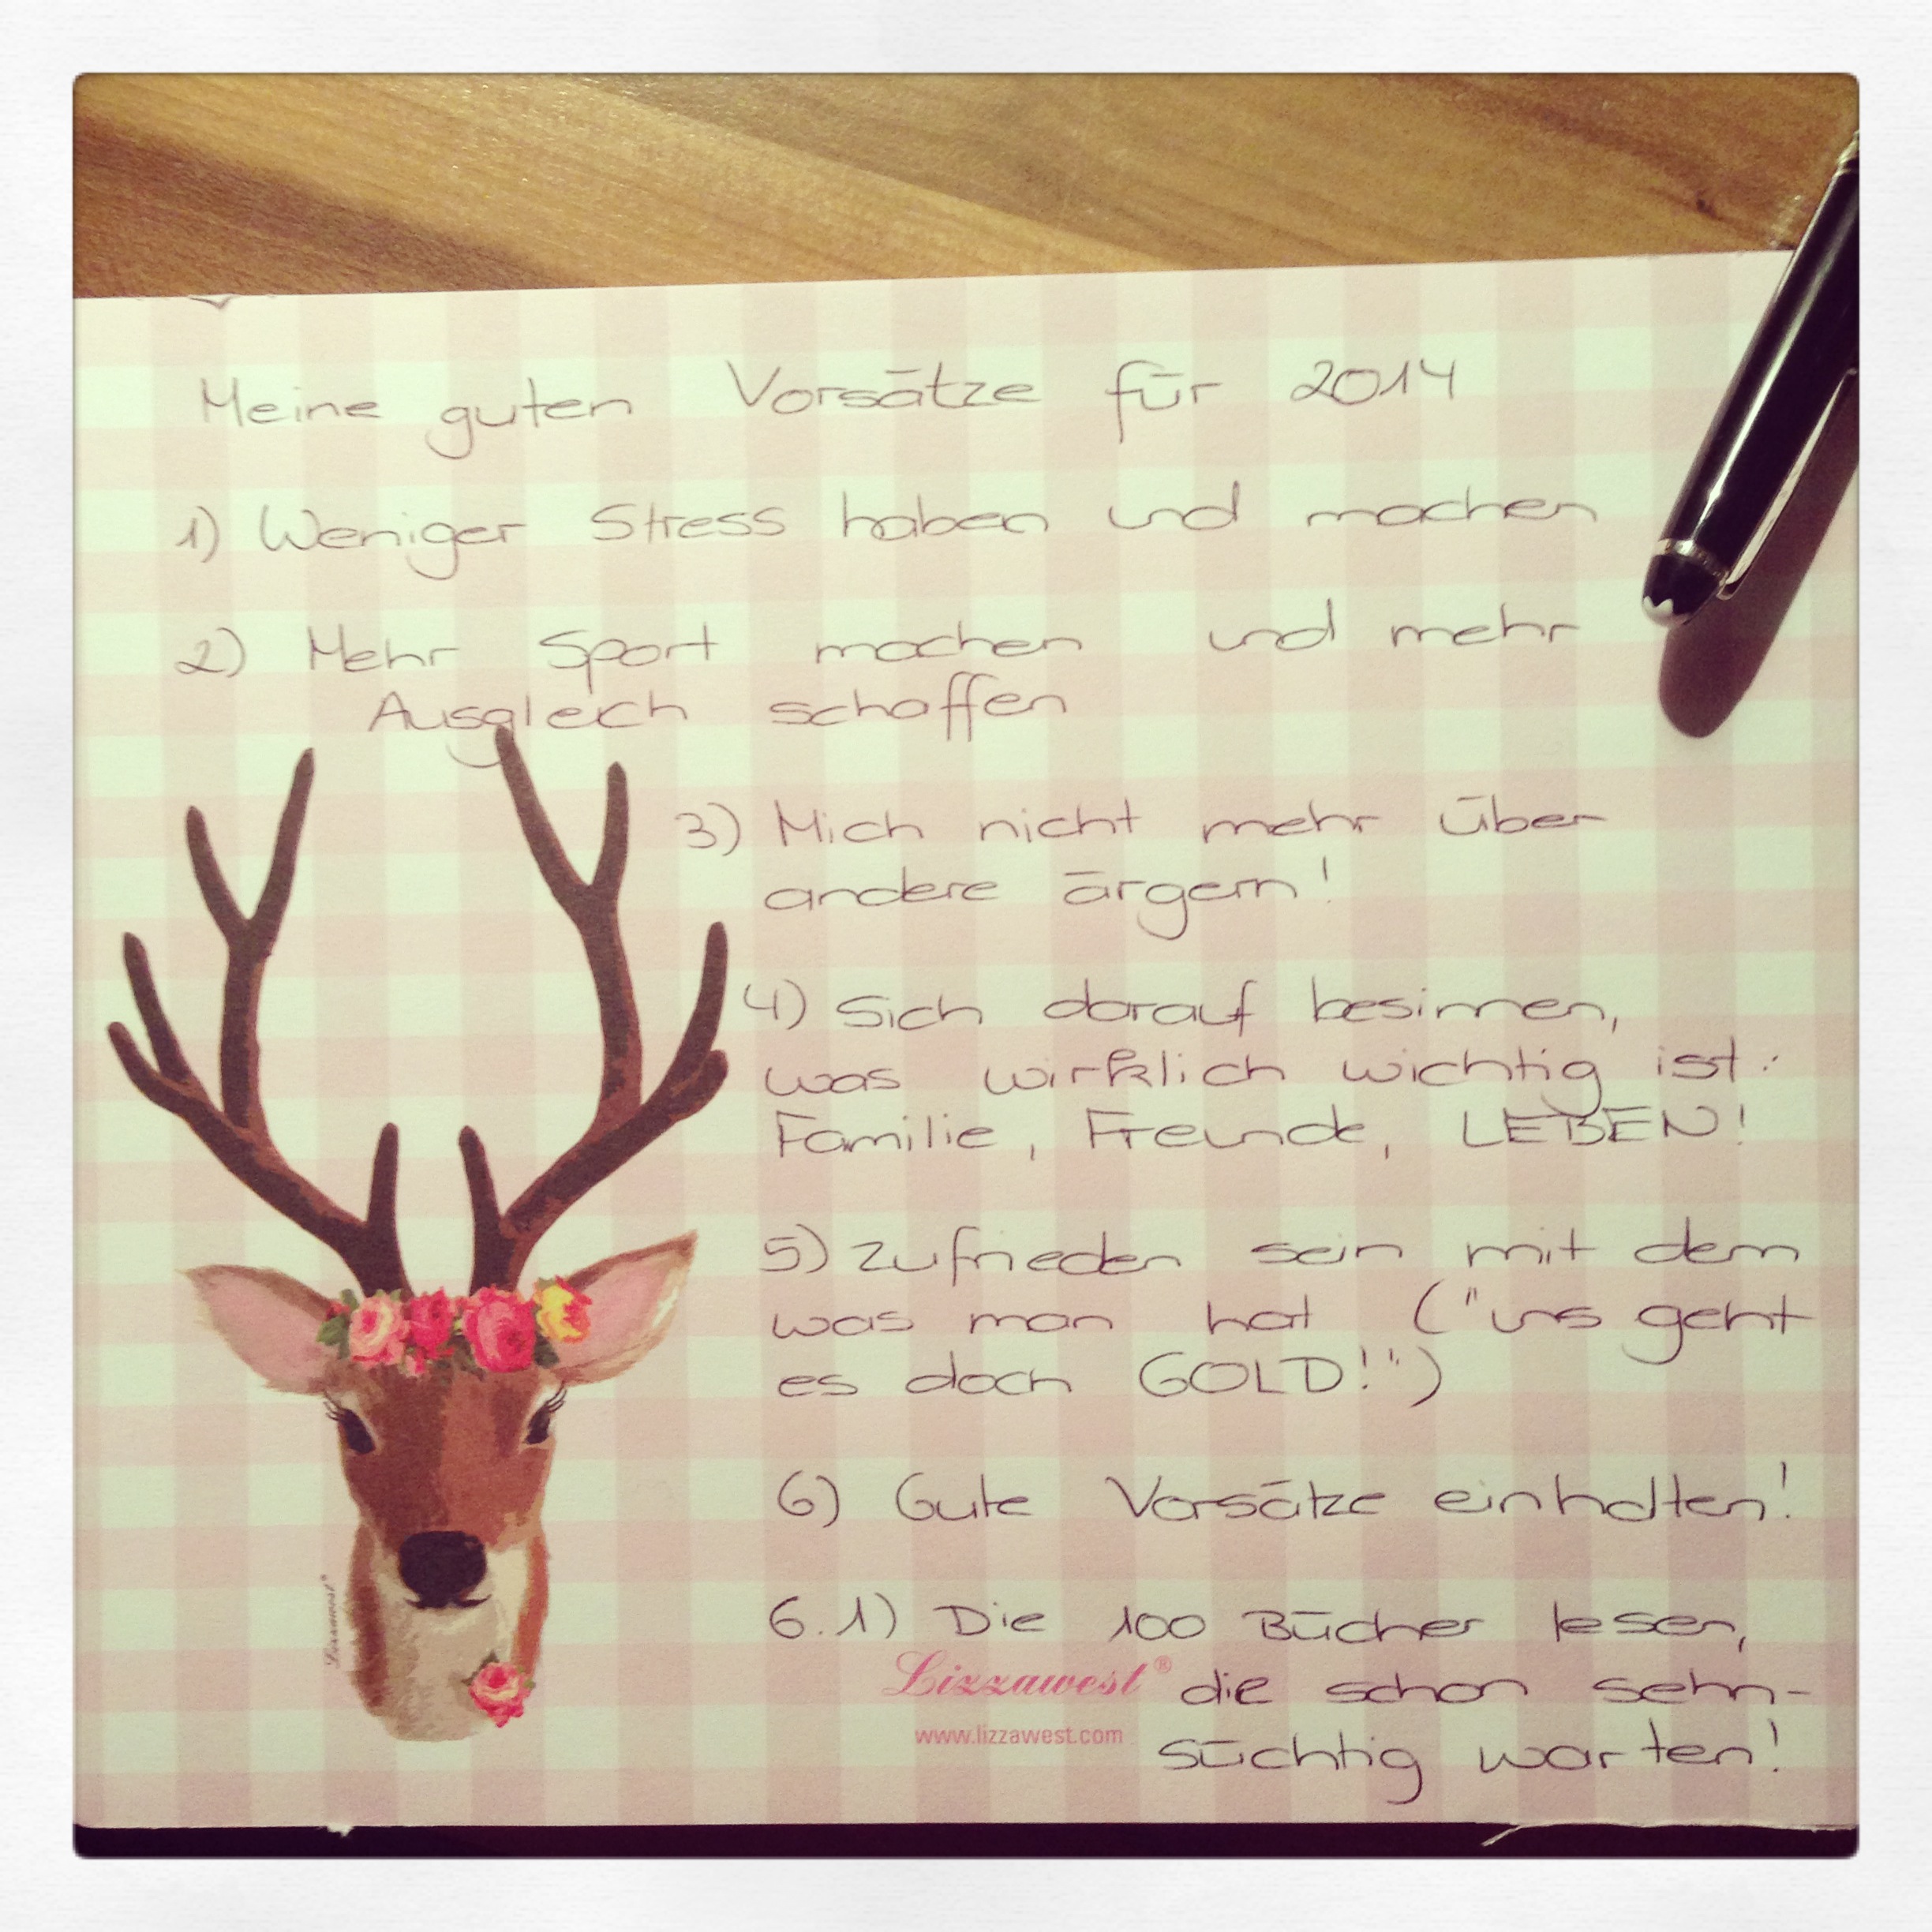 Meine guten Vorsätze für 2014
1) Weniger Stress haben und machen
2) Mehr Sport machen und mehr
Ausgleich schaffen
3) Mich nicht mehr über
andere ärgern!
4) Sich darauf besinnen,
was wirklich wichtig ist:
Familie, Freunde, LEBEN!
5) Zufrieden sein mit dem
was man hat ("uns geht
es doch GOLD!")
6) Gute Vorsätze einhalten!
6.1) Die 100 Bücher lesen,
die schon sehn-
süchtig warten!
Lizzawest®
www.lizzawest.com
Lizzawest®